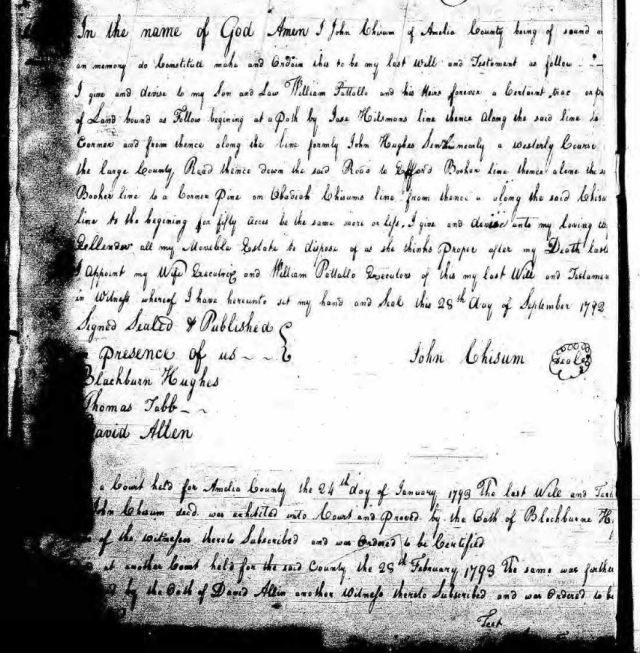 In the name of God Amen I John Chisum of Amelia County being of sound
an memory do Constitute make and Ordain this to be my last Will and Testament as follow
I give and devise to my Son and Law William Pattallo and his Heirs forever a Certaint
of Land bound as Follow begining at a Path by Jase Hilsmans line thence along the said line
Corner and from thence along the line formly John Hughes a Westerly Course
the large County Road thence down the said Road to Efford Booker line thence alone the
Booker line to a Corner Pine on Obadiah Chisums line from thence a along the said
line to the begining for fifty Acres be the same more or less, I give and devise unto my loving
all my Moveble Estate to dispose of as she thinks Proper after my Death
I Appoint my Wife Executrex and William Pattallo Executors of this my last Will and
in Witness whereof I have hereunto set my hand and Seal this 28th day of September 1792
Signed Sealed & Published
presence of us
John Chisum Seal
Blackburn Hughes
Thomas Tabb
David Allen
a Court held for Amelia County the 24th day of January 1793 The last Will and
John Chisum decd. was exhibited into Court and Proved by the Oath of Blackburne H
of the witnesses thereto Subscribed and was Ordered to be Certified
at another Court held for the said County the 28th February 1793 The same was further
by the Oath of David Allin another Witness thereto Subscribed and was Ordered to be
Test